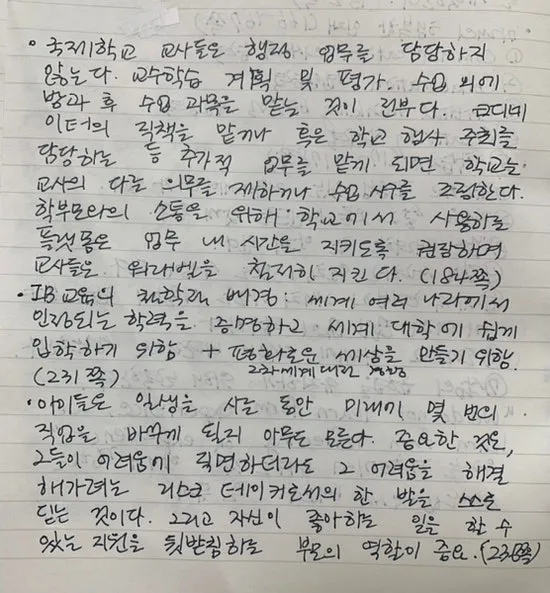 · 국제학교 교사들은 행정 업무를 담당하지
않는다. 교수학습 계획 및 평가. 수업 외에
방과 후 수업 과목을 맡는 것이 전부다. 코디네
이터의 직책을 맡거나 혹은 학교 행사 주최를
담당하는 등 추가적 업무를 맡게 되면 학교는
교사의 다른 의무를 제하거나 수업 시수를 조정한다.
학부모와의 소통을 위해 학교에서 사용하는
플랫폼은 업무 내 시간을 지키도록 권장하며
교사들은 워라벨을 철저히 지킨다. (184쪽)
· IB교육의 철학과 배경: 세계 여러 나라에서
인정되는 학력을 증명하고 세계 대학에 쉽게
입학하기 위함 + 평화로운 세상을 만들기 위함.
(231쪽) 2차세계대전
· 아이들은 일생을 사는 동안 미래에 몇 번의
직업을 바꾸게 될지 아무도 모른다. 중요한 것은,
그들이 어려움에 직면하더라도 그 어려움을 해결
해가려는 리스크 테이커로서의 한 발을 스스로
딛는 것이다. 그리고 자신이 좋아하는 일을 할 수
있는 지원을 뒷받침하는 부모의 역할이 중요.